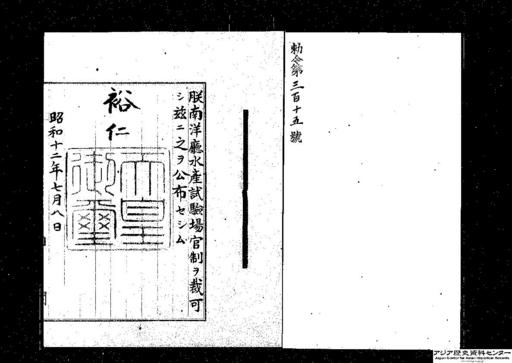 勅令第三百十五號
朕南洋廳水産試驗場官制ヲ裁可
シ茲ニ之ヲ公布セシム
裕仁
天皇
御璽
昭和十二年七月八日
アジア歴史資料センター
Japan Center for Asian Historical Records